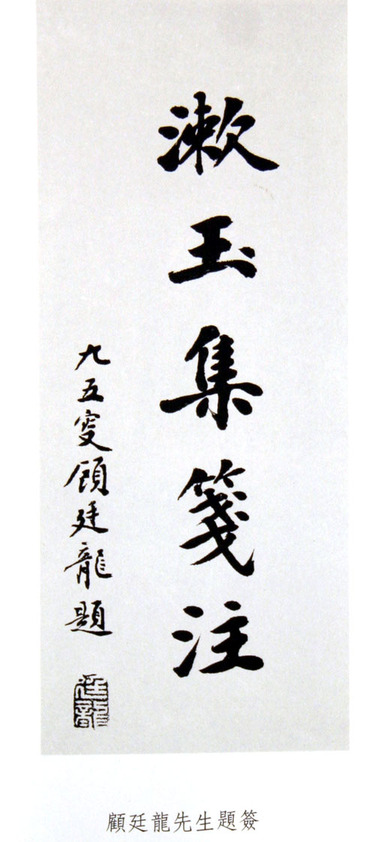 漱玉集箋注
九五叟顧廷龍題
廷龍
顧廷龍先生題簽